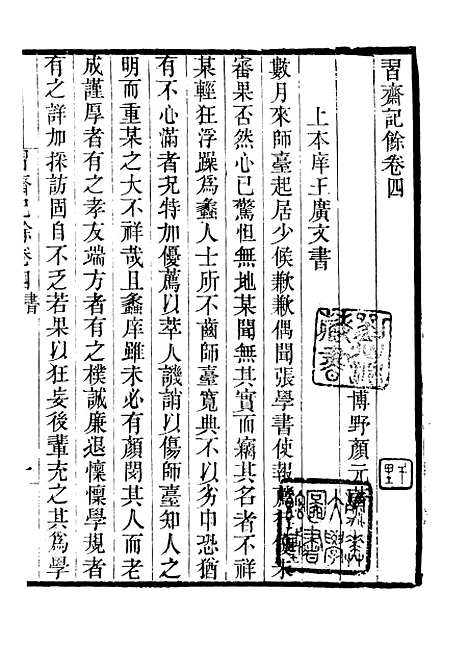 習齋記餘卷四
博野顏元
上本庠王廣文書
數月來師臺起居少候歉歉偶聞張學書使報
審果否然心已驚怛無地某聞無其實而竊其名者不祥
某輕狂浮躁爲蠡人士所不齒師臺寬典不以劣申恐猶
有不心滿者况特加優薦以萃人譏誚以傷師臺知人之
明而重某之大不祥哉且蠡庠雖未必有顏閔其人而老
成謹厚者有之孝友端方者有之樸誠廉退懍懍學規者
有之詳加採訪固自不乏若果以狂妄後輩充之其爲學
習齋記餘卷四 書
一